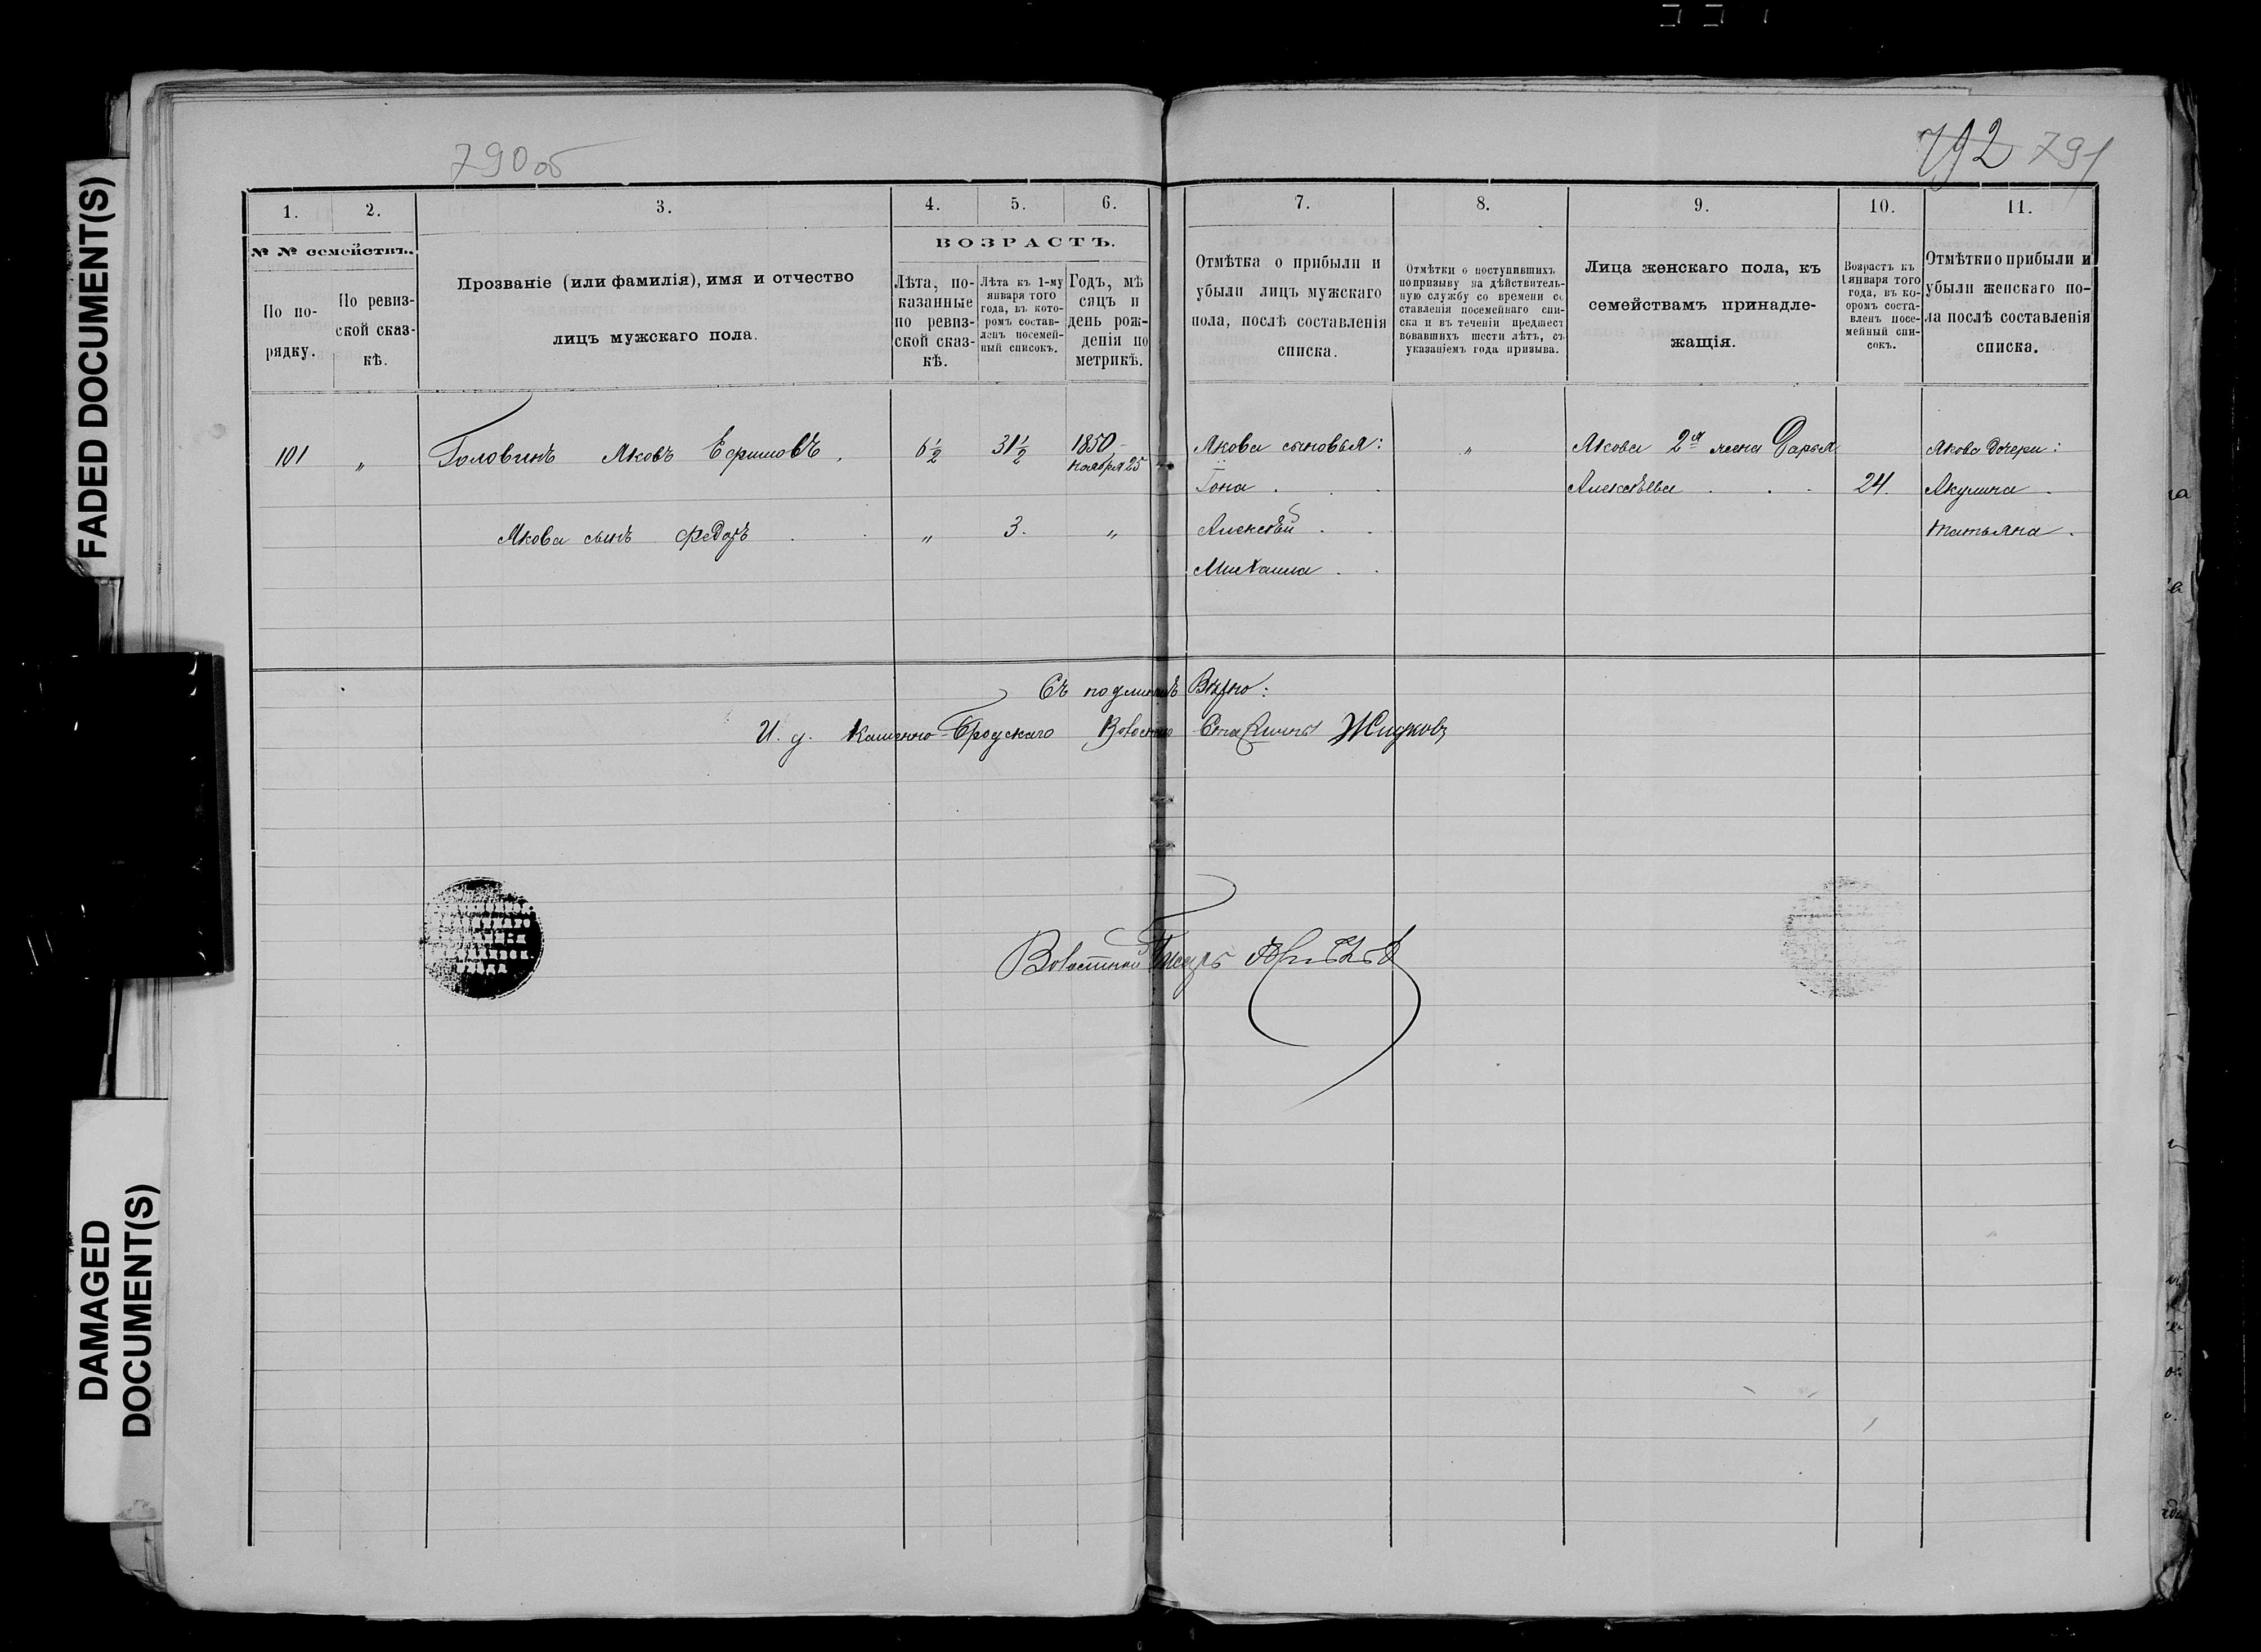 FADED DOCUMENT(S)
DAMAGED
DOCUMENT(S)
790 об
792 791
1.
2.
3.
4.
5.
6.
7.
8.
9.
10.
11.
№ № семействъ.
По по-
рядку.
По ревиз-
ской сказ-
кѣ.
Прозваніе (или фамилія), имя и отчество
лицъ мужскаго пола.
ВОЗРАСТЪ.
Лѣта, по-
казанные
по ревиз-
ской сказ-
кѣ.
Лѣта къ 1-му
января того
года, въ кото-
ромъ состав-
ленъ посемей-
ный списокъ.
Годъ, мѣ
сяцъ и
день рож-
денія по
метрикѣ.
Отмѣтка о прибыли и
убыли лицъ мужскаго
пола, послѣ составленія
списка.
Отмѣтки о поступившихъ
по призыву на дѣйствитель-
ную службу со времени со
ставленія посемейнаго спи-
ска и въ теченіи предшест
вовавшихъ шести лѣтъ, съ
указаніемъ года призыва.
Лица женскаго пола, къ
семействамъ принадле-
жащія.
Возрастъ къ
1 января того
года, въ ко-
оромъ соста-
вленъ посе-
мейный спи-
сокъ.
Отмѣтки о прибыли и
убыли женскаго по-
ла послѣ составленія
списка.
101 „ Головинъ Яковъ Ефимовъ. 6½ 31½ 1850 Якова сыновья: „ Якова 2я жена Дарья Якова дочери:
Ноября 25
Іона Алексѣева 24. Акулина
Якова сынъ Федоръ „ 3. „ Алексѣй Татьяна
Михаила
Съ подлиннымъ Вѣрно:
И. д. Каменно-Бродскаго Волостнаго Старшины Жидковъ
Волостной Писарь